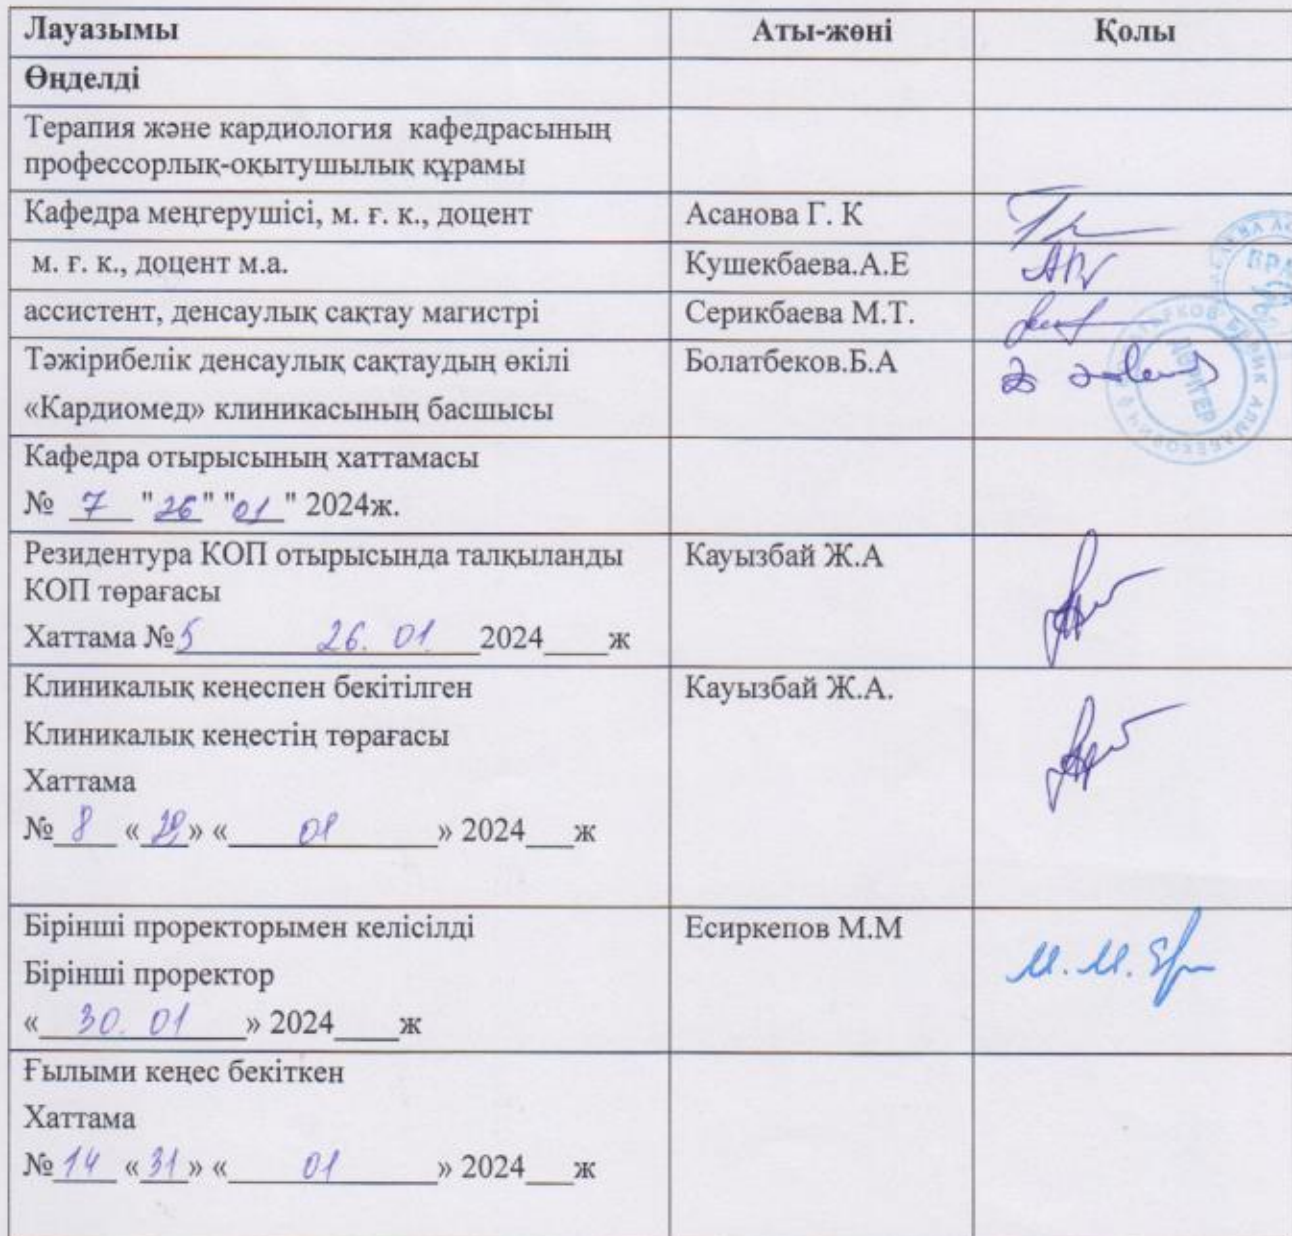 Лауазымы Аты-жөні Қолы
Өңделді
Терапия және кардиология кафедрасының
профессорлық-оқытушылық құрамы
Кафедра меңгерушісі, м. ғ. к., доцент Асанова Г. К
м. ғ. к., доцент м.а. Кушекбаева.А.Е
ассистент, денсаулық сақтау магистрі Серикбаева М.Т.
Тәжірибелік денсаулық сақтаудың өкілі Болатбеков.Б.А
«Кардиомед» клиникасының басшысы
ДӘРІГЕР
Кафедра отырысының хаттамасы
№ 7 "26" "01" 2024ж.
Резидентура КОП отырысында талқыланды Кауызбай Ж.А
КОП төрағасы
Хаттама №5 26. 01 2024____ж
Клиникалық кеңеспен бекітілген Кауызбай Ж.А.
Клиникалық кеңестің төрағасы
Хаттама
№ 8 « » « 01 » 2024___ж
Бірінші проректорымен келісілді Есиркепов М.М
Бірінші проректор М.М.
« 30. 01 » 2024____ж
Ғылыми кеңес бекіткен
Хаттама
№ 14 «31» « 01 » 2024___ж